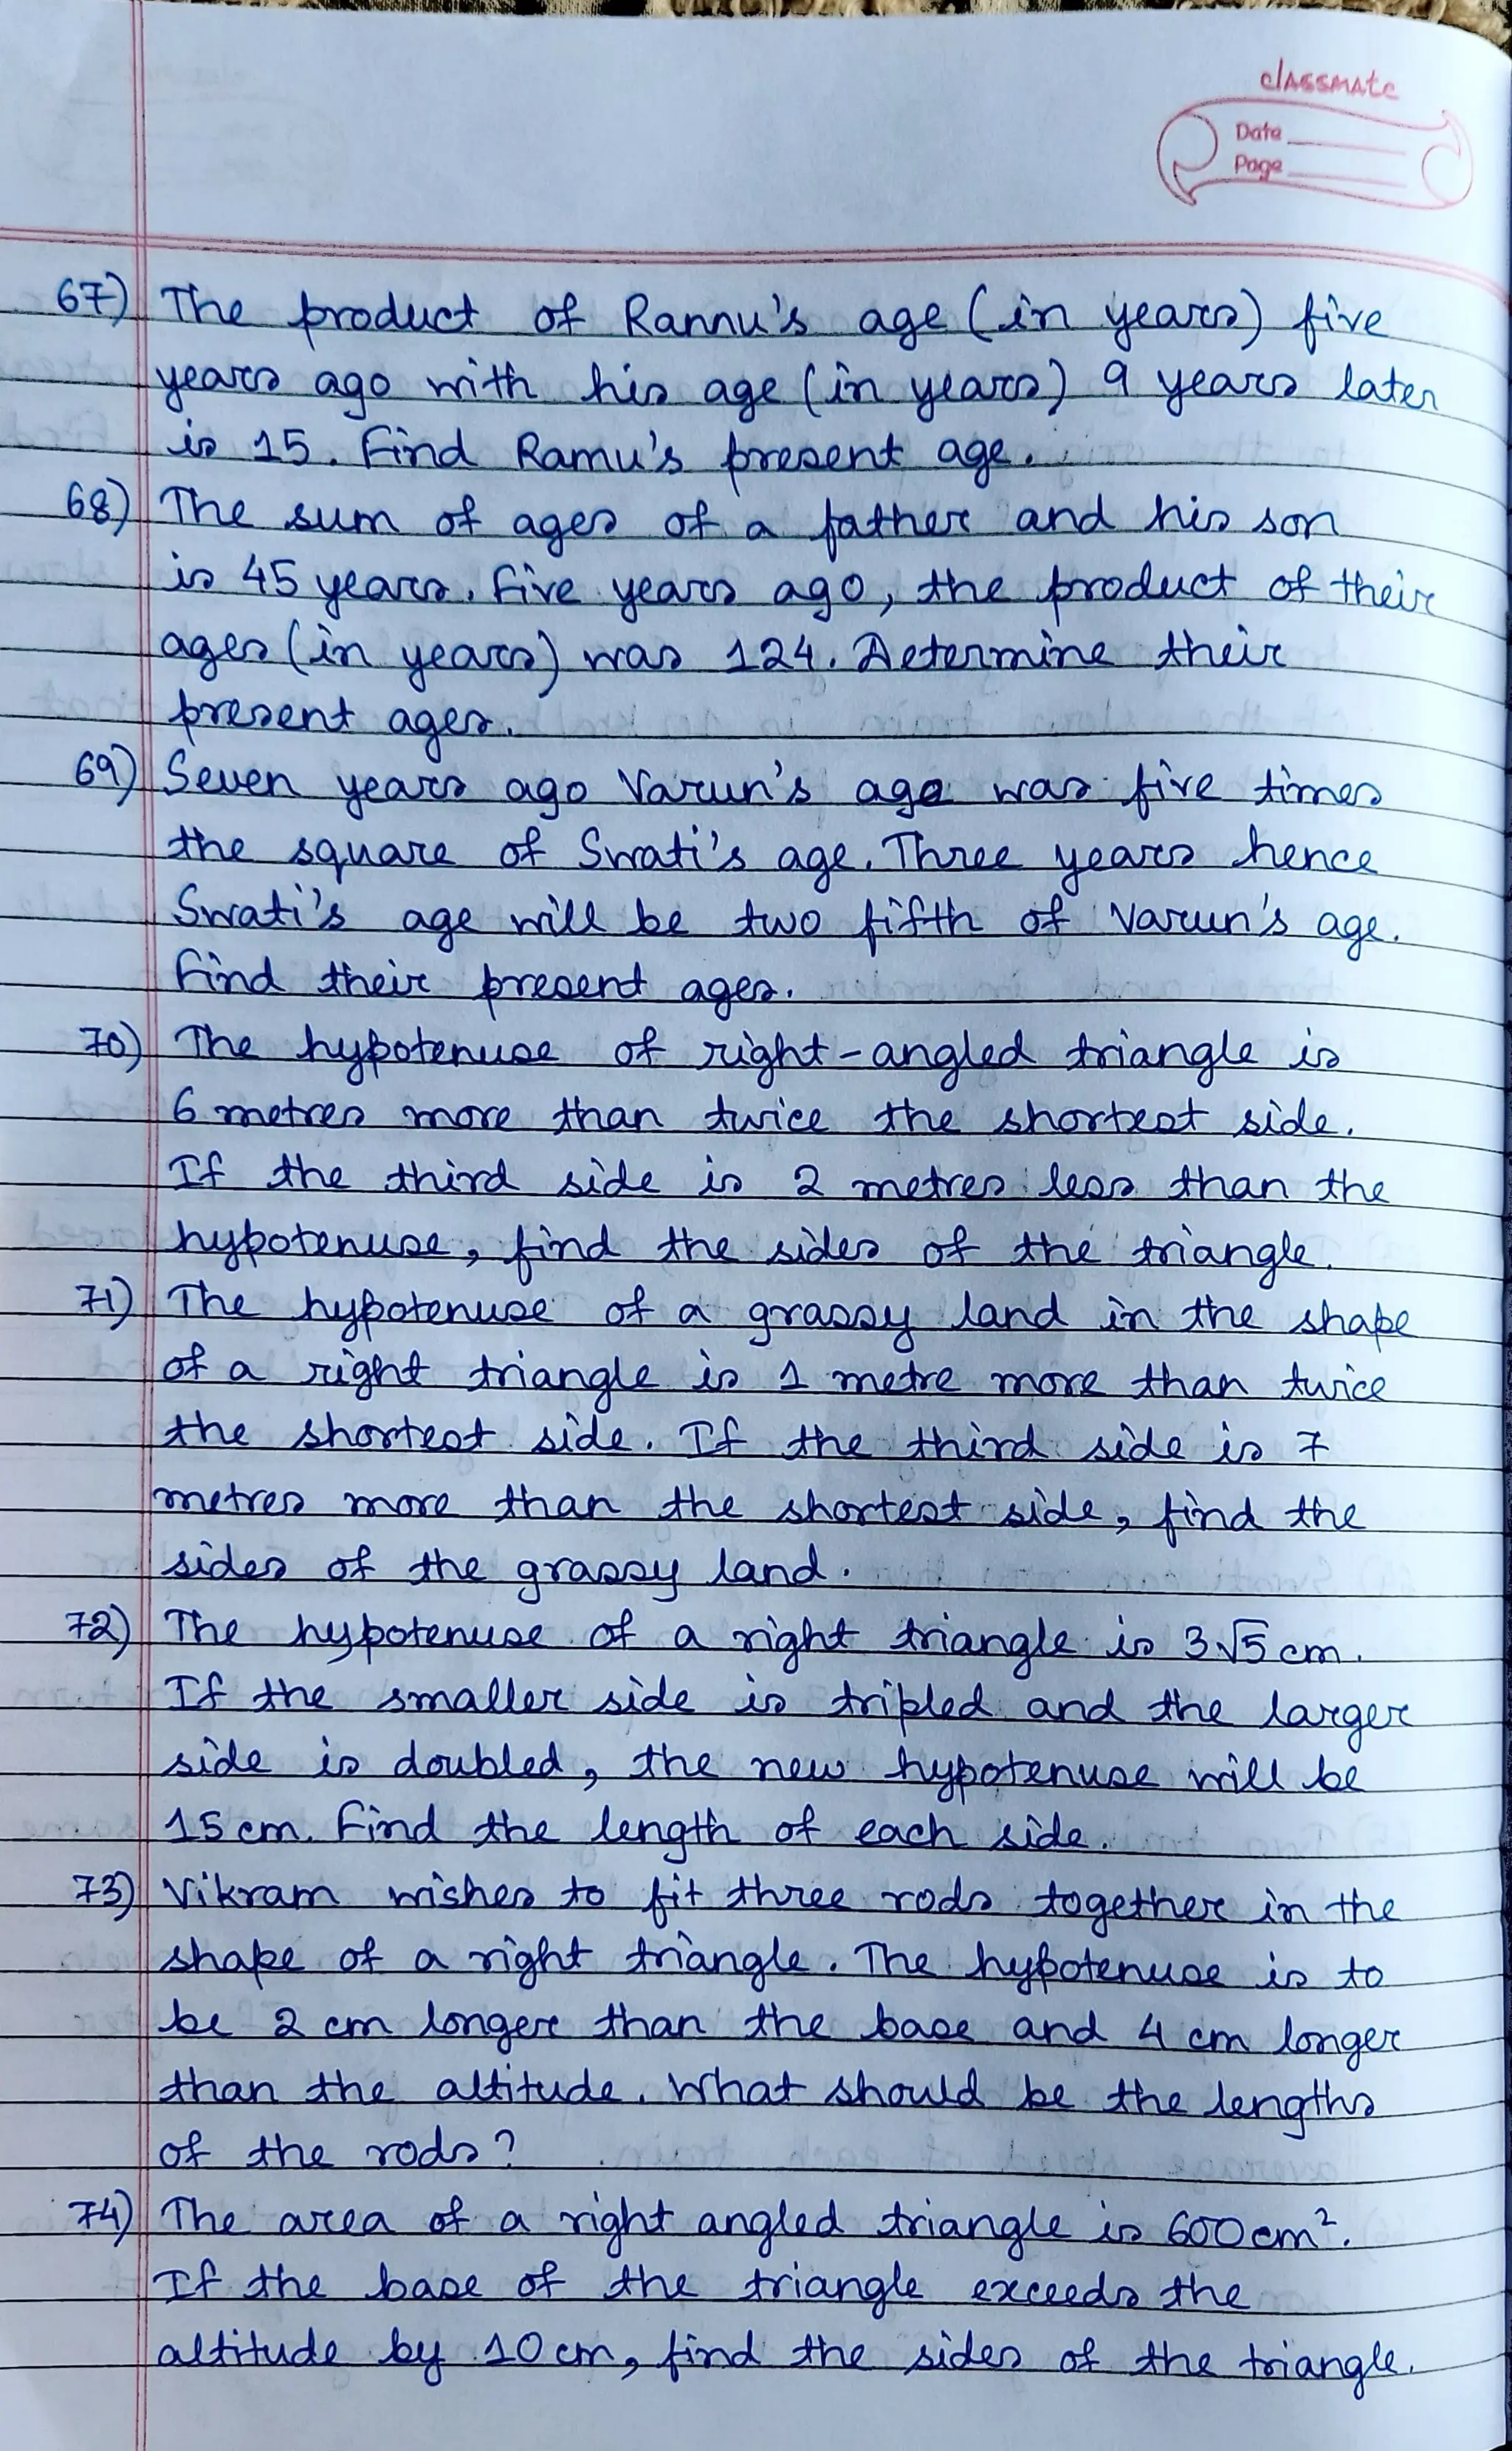 classmate
Date
Page
67) The product of Rannu's age (in years) five
years ago with his age (in years) 9 years later
is 15. Find Ramu's present age.
68) The sum of ages of a father and his son
is 45 years. Five years ago, the product of their
ages (in years) was 124. Determine their
present ages.
69) Seven years ago Varun's age was five times
the square of Swati's age. Three years hence
Swati's age will be two fifth of Varun's age.
Find their present ages.
70) The hypotenuse of right-angled triangle is
6 metres more than twice the shortest side.
If the third side is 2 metres less than the
hypotenuse, find the sides of the triangle.
71) The hypotenuse of a grassy land in the shape
of a right triangle is 1 metre more than twice
the shortest side. If the third side is 7
metres more than the shortest side, find the
sides of the grassy land.
72) The hypotenuse of a right triangle is 3√5 cm.
If the smaller side is tripled and the larger
side is doubled, the new hypotenuse will be
15 cm. Find the length of each side.
73) Vikram wishes to fit three rods together in the
shape of a right triangle. The hypotenuse is to
be 2 cm longer than the base and 4 cm longer
than the altitude. What should be the lengths
of the rods?
74) The area of a right angled triangle is 600 cm².
If the base of the triangle exceeds the
altitude by 10 cm, find the sides of the triangle.